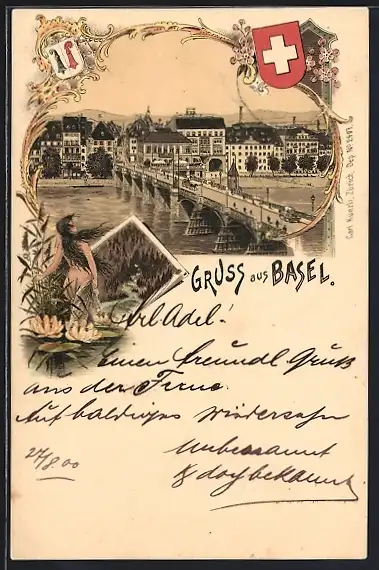 GRUSS aus BASEL.
Carl Künzli, Zürich. Dep. No
Adel!
Einen freundl Gruß
aus der Ferne.
Auf baldiges Wiedersehn
Unbekannt
& doch bekannt
27/8.00